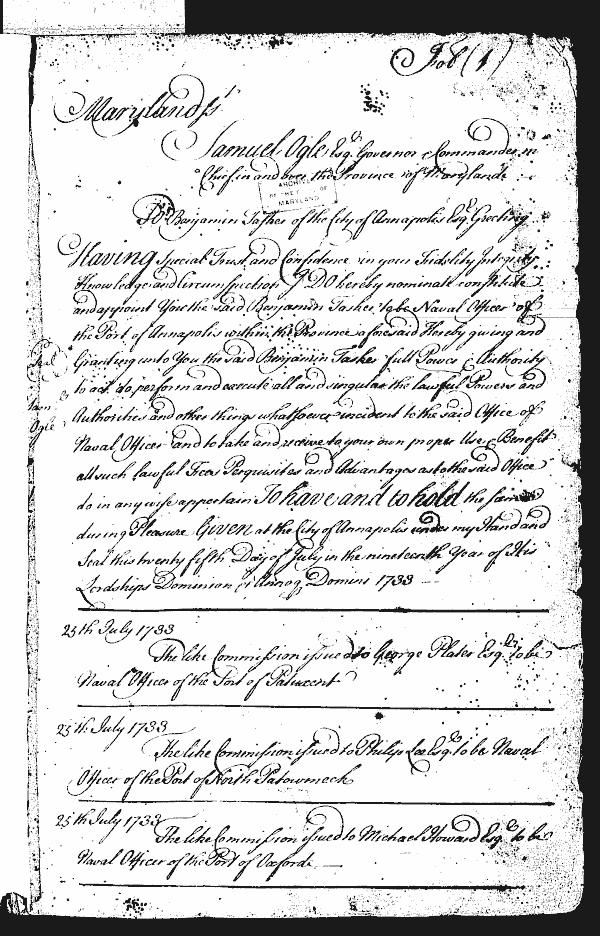 Fol (1)
Maryland ss
Samuel Ogle Esqr. Governor & Commander in
Chief in and over the Province of Maryland
ARCHIVES
OF THE
MARYLAND
To Benjamin Tasker of the City of Annapolis Esqr. Greeting
Having Special Trust and Confidence in your Fidelity Integrity
Knowledge and circumspection I DO hereby nominate constitute
and appoint You the said Benjamin Tasker to be Naval Officer of
the Port of Annapolis within the Province aforesaid Hereby giving and
Granting unto You the said Benjamin Tasker full Power & Authority
Seal
to act do perform and execute all and singular the lawful Powers and
Sam:
Authorities and other things whatsoever incident to the said Office of
Ogle
Naval Officer and to take and receive to your own proper Use & Benefit
all such lawful Fees Perquisites and Advantages as to the said Office
do in any wise appertain To have and to hold the same
during Pleasure Given at the City of Annapolis under my Hand and
Seal this twenty fifth Day of July in the nineteenth Year of His
Lordships Dominion &c Annoq Domini 1733
25th July 1733
The like Commission issued to George Plater Esqr. to be
Naval Officer of the Port of Patuxent
25th July 1733
The like Commission issued to Philip Lee Esqr. to be Naval
Officer of the Port of North Patowmeck
25th July 1733
The like Commission issued to Michael Howard Esqr. to be
Naval Officer of the Port of Oxford